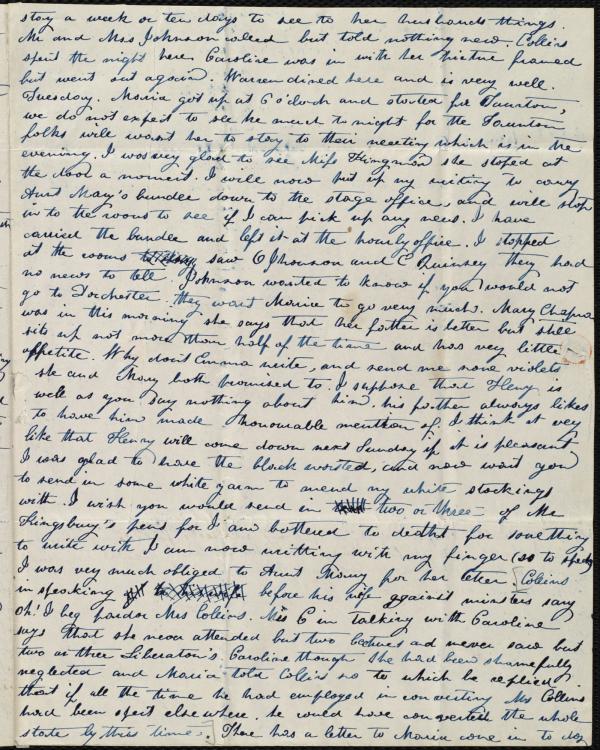 stay a week or ten days to see to her husbands things.
Mr and Mrs Johnson called but told nothing new. Collins
spent the night here Caroline was in with her picture framed
but went out again. Warren dined here and is very well.
Tuesday. Maria got up at 6 o'clock and started for Taunton,
we do not expect to see her much to night for the Taunton
folks will want her to stay to their meeting which is in the
evening. I was very glad to see Miss Kingman she stoped at
the door a moment. I will now put up my writing to carry
Aunt Mary's bundle down to the stage office and will stop
in to the rooms to see if I can pick up any news. I have
carried the bundle and left it at the hourly office. I stopped
at the rooms saw O Jhonson and E Quinsey they had
no news to tell. Johnson wanted to know if you would not
go to Dorchester. they want Maria to go very much. Mary Chapman
was in this morning she says that her father is better but still
sits up not more than half of the time and has very little
appetite. Why dont Emma write, and send me some violets
she and Mary both promised to. I suppose that Henry is
well as you say nothing about him. his father always likes
to have him made honourable mention of. I think it very
like that Henry will come down next Sunday if it is pleasant
I was glad to have the black worsted, and now want you
to send in some white yarn to mend my white stockings
with. I wish you would send in two or three of Mr
Kingsbury's pens for I am bothered to death for something
to write with I am now writting with my finger (so to speak)
I was very much obliged to Aunt Mary for her letter. Collins
in speaking before his wife against ministers say
Oh! I beg pardon Mrs Collins. Mrs C in talking with Caroline
says that she never attended but two lectures and never saw but
two or three Liberator's Caroline though she had been shamefully
neglected and Maria told Collins so to which he replied
that if all the time he had employed in converting Mrs Collins
had been spent elsewhere, he could have converted the whole
state by this time. There has a letter to Maria come in to day